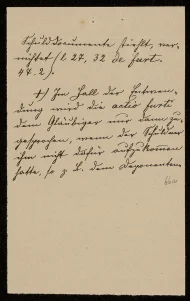 Schulddocumente stiehlt, ver-
nichtet (l. 27, 32 de furt.
47. 2).
†) Im Fall der Entwen-
dung wird die actio furti
dem Gläubiger nur dann zu-
gesprochen, wenn der Schuldner
ihm nicht dafür aufzukommen
hatte, so z. B. dem Deponenten